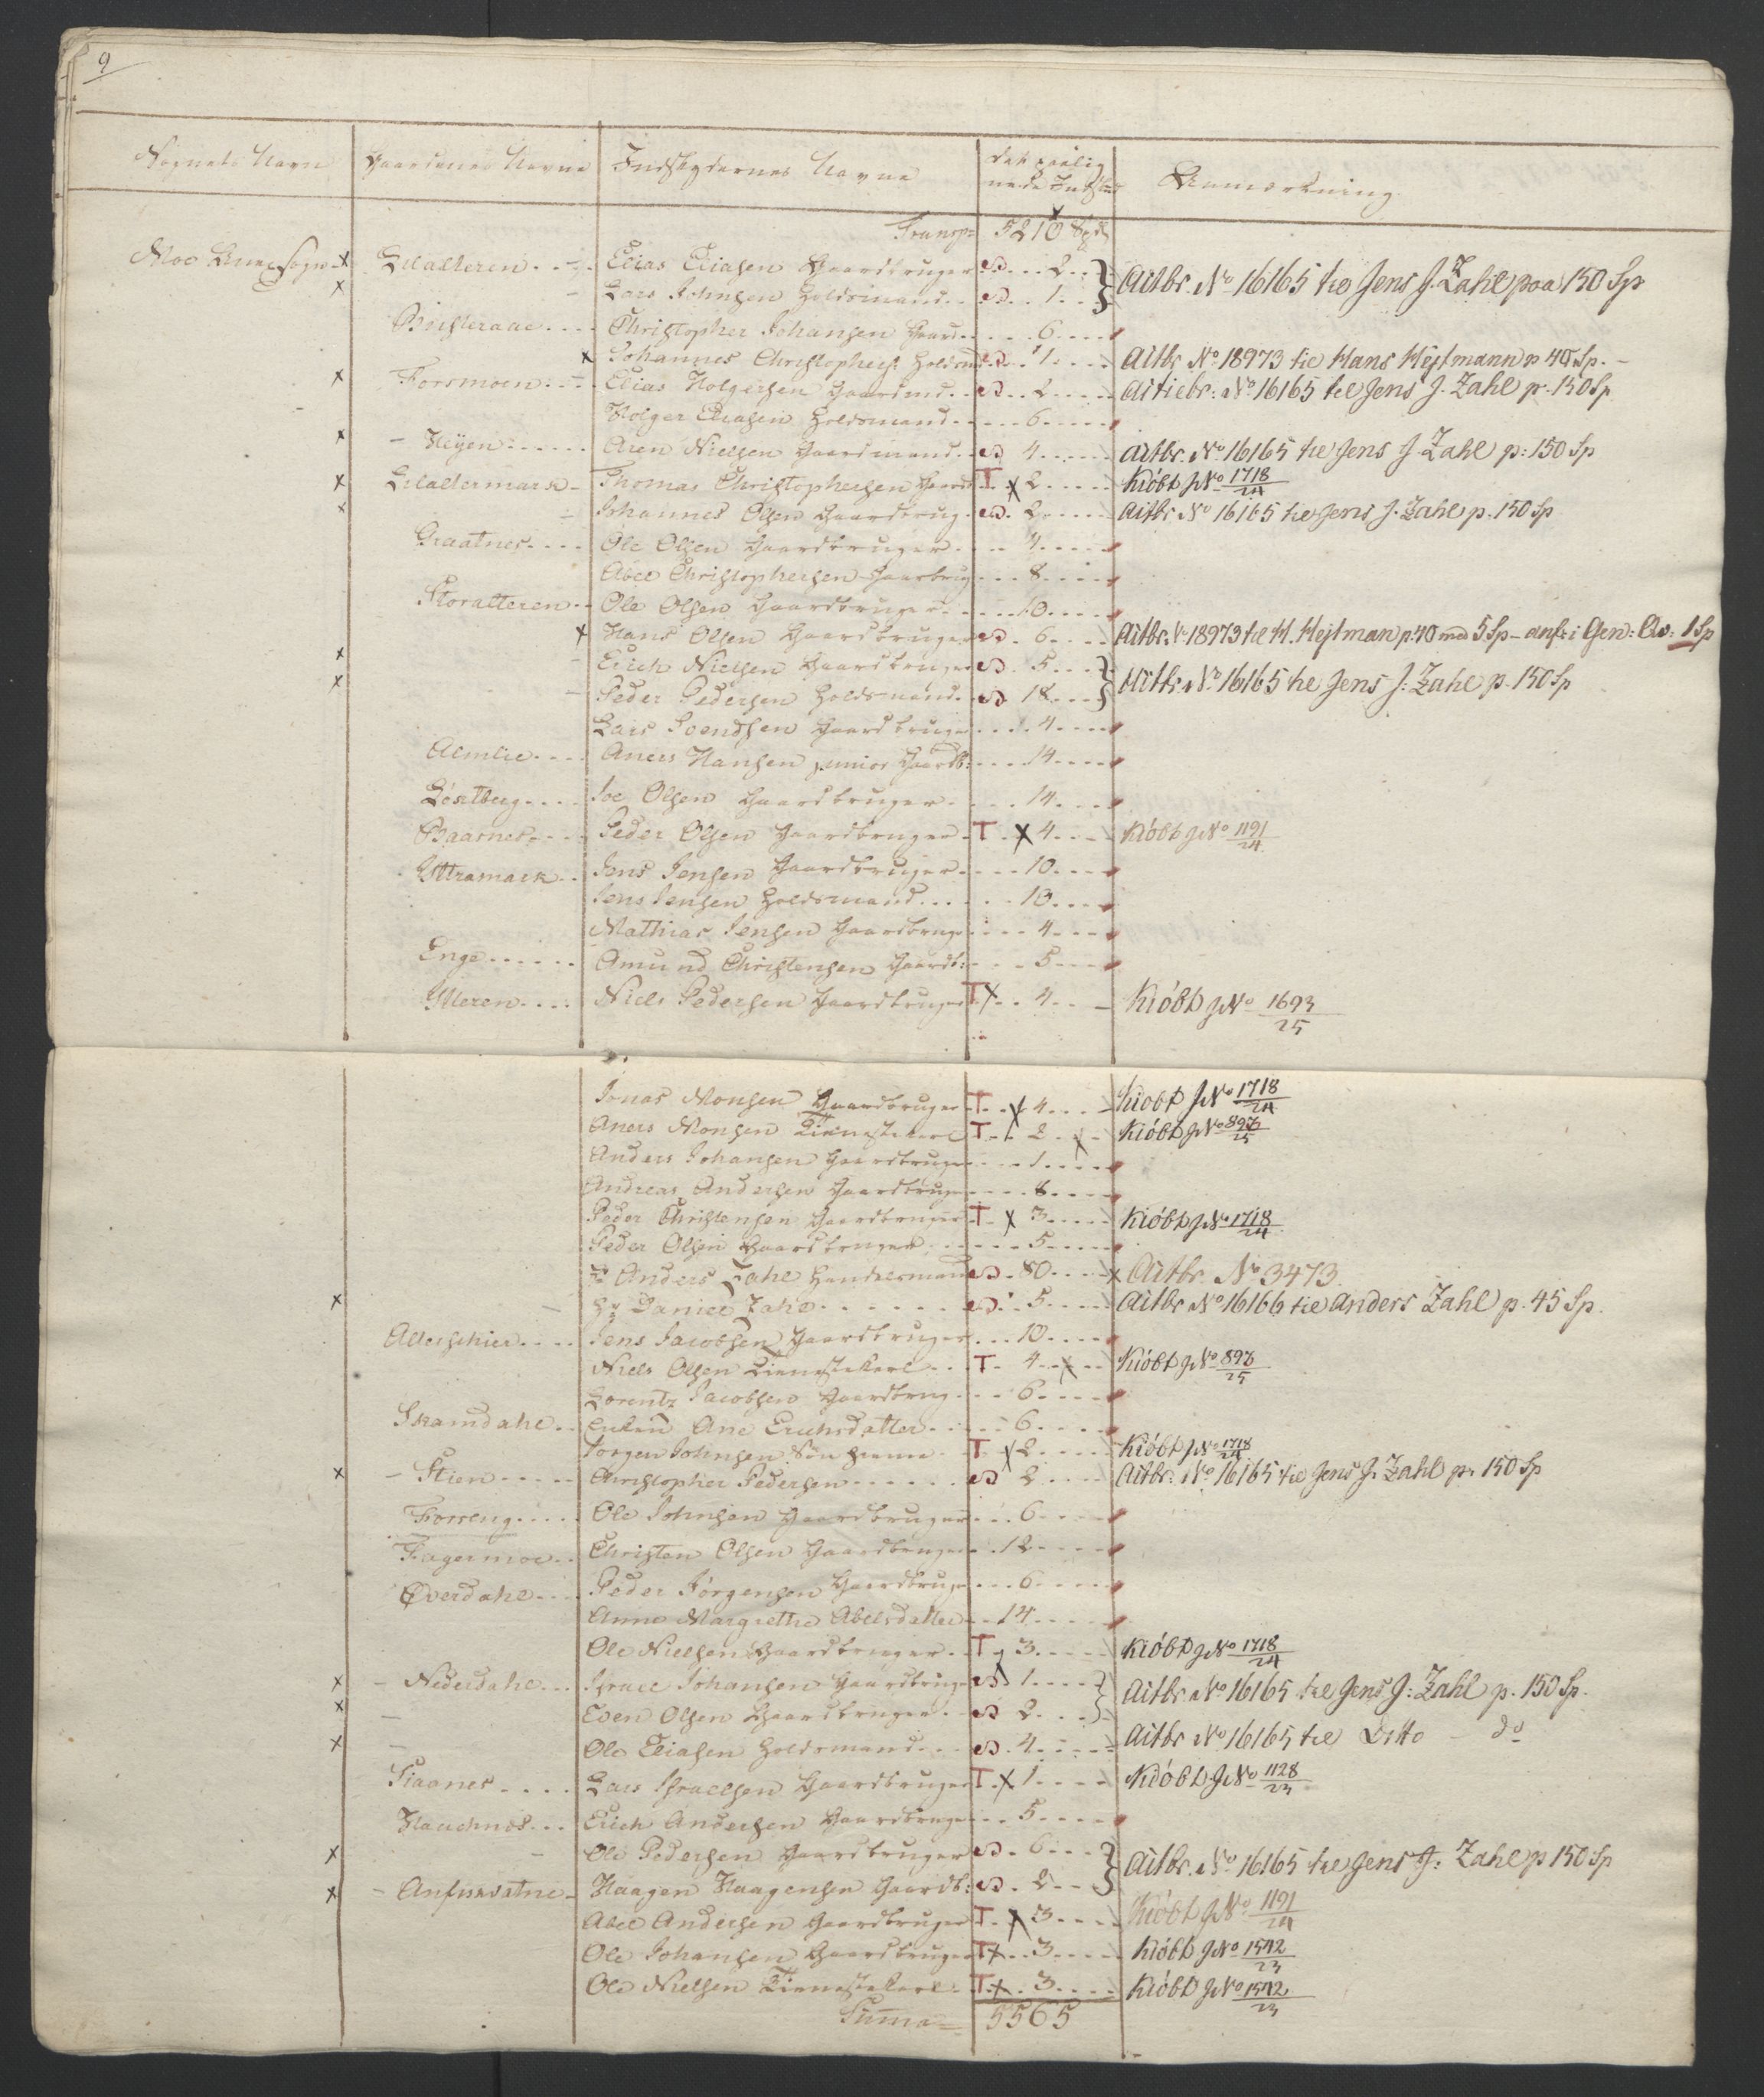 9
Sognets Navn Gaardenes Navne Indbygdernes Navne det paalig Anmærkning
nede Indskud
Transpt 5210 Spd
Moe Annex Sogn x Lilalteren Elias Eliasen Gaardbruger 2 } Actbr. No 16165 til Jens J. Zahl paa 150 Sp
x Lars Johnsen Holdsmand 1 }
Buisteraae Christopher Johansen Gaard 6
x Johannes Christophers. Holdsmd 1 Actbr No 18973 til Hans Hejtmann p 40 Sp.
x Forsmoen Elias Holgersen Gaardmd 2 Actiebr: No 16165 til Jens J. Zahl p. 150 Sp
Holger Eliasen Holdsmand 6
x Heÿen Aren Nielsen Gaardmand 4 Actbr. No 16165 til Jens J. Zahl p: 150 Sp
x Lilaltermark Thomas Christophersen Gaardb T x 2 Kióbt JNo 1718/24
x Johannes Olsen Gaardbrug 2 Actbr No 16165 til Jens J. Zahl p. 150 Sp
Graatnes Ole Olsen Gaardbruger 4
Abel Christophersen Gaarbrug 8
Storalteren Ole Olsen Gaardbruger 10
x Hans Olsen Gaardbruger 6 Actbr. No 18973 til H. Hejtman p. 40 med 5 Sp - anf: i Gen: Qv: 1 Sp
x Erich Nielsen Gaardbruger 5 } Actbr No 16165 til Jens J: Zahl p. 150 Sp
x Peder Pedersen Holdsmand 18 }
Lars Svendsen Gaardbruger 4
Almlie Aners Hansen junior Gaardb: 14
Lósetberg Joe Olsen Gaardbruger 14
Baasnes Peder Olsen Gaardbruger T x 4 Kióbt JNo 1191/24
Yttramark Jens Jensen Gaardbruger 10
Jens Jensen Holdsmand 10
Mathias Jensen Gaardbruge 4
Enge Amund Christensen Gaardb: 5
Ytteren Niels Pedersen Gaardbruger T x 4 Kióbt JNo 1693/25
Jonas Monsen Gaardbruger T x 4 Kiobt JNo 1718/24
Aners Monsen Tienestekarl T 2 x Kióbt JNo 898/25
Anders Johansen Gaardbruge 1
Andreas Andersen Gaardbruge 8
Peder Christensen Gaardbruger T x 3 Kióbt JNo 1718/24
Peder Olsen Gaardbruger 5
Hr Anders Zahl Handelsmand 80 x Actbr. No 3473.
x Hr Daniel Zahl 5 Actbr No 16166 til Anders Zahl p. 45 Sp.
Alterschier Jens Jacobsen Gaardbruger 10
Niels Olsen Tienestekarl T 4 x Kióbt JNo 898/25
Lorentz Jacobsen Gaardbrug 6
Skamdahl Enken Ane Erichsdatter 6
Jorgen Johnsen Sön hieme T x 2 Kióbt JNo 1718/24
x Stien Christopher Pedersen 2 Actbr: No 16165 til Jens J. Zahl p. 150 Sp
Forseng Ole Johnsen Gaardbruger 6
Fagermoe Christen Olsen Gaardbruger 12
Øverdahl Peder Jórgensen Gaardbruge 6
Anne Margrethe Abelsdatter 14
Ole Nielsen Gaardbruger T 3 Kióbt JNo 1718/24
x Nederdahl Israel Johansen Gaardbruge 1 } Actbr. No 16165 til Jens J: Zahl p. 150 Sp.
x Even Olsen Gaardbruger 2 }
x Ole Eliasen Holdsmand 4 Actbr No 16165 til Ditto do
Fiaanes Lars Israelsen Gaardbruger T x 1 Kióbt JNo 1128/23
Hauchnes Erich Andersen Gaardbruge 5
x Ole Pedersen Gaardbruger 6 } Actbr. No 16165 til Jens J: Zahl p 150 Sp
x Anfindsatne Haagen Haagensen Gaardb: 2 }
Abel Andersen Gaardbruger T x 3 Kióbt JNo 1191/24
Ole Johansen Gaardbruger T x 3 Kióbt JNo 1542/23
Ole Nielsen Tienestekarl T x 3 Kióbt JNo 1542/23
Suma 5565